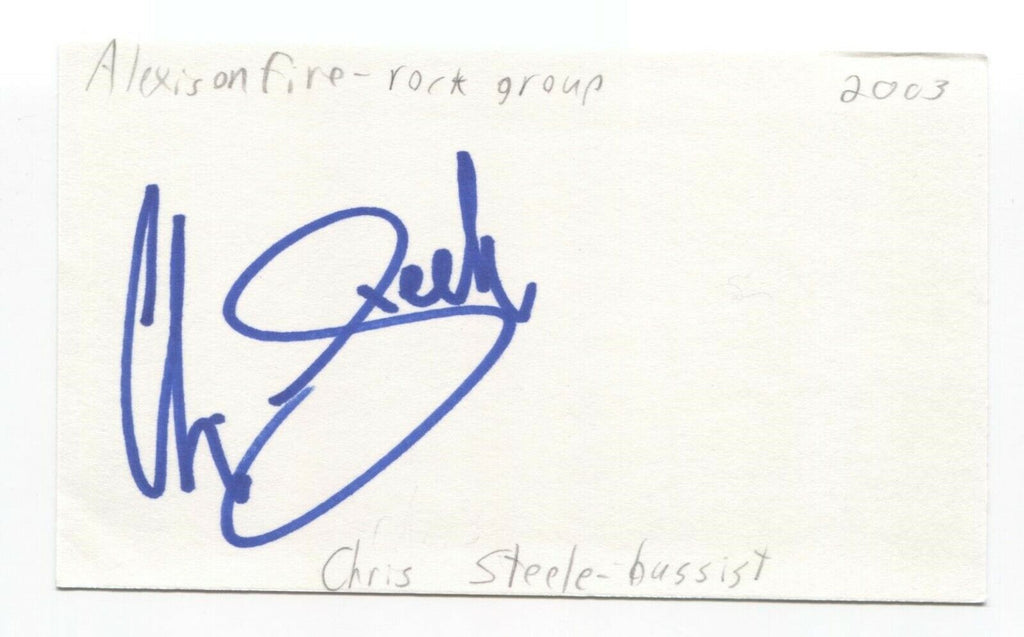 Alexisonfire - rock group 2003
Chris Steele
Chris Steele - bassist